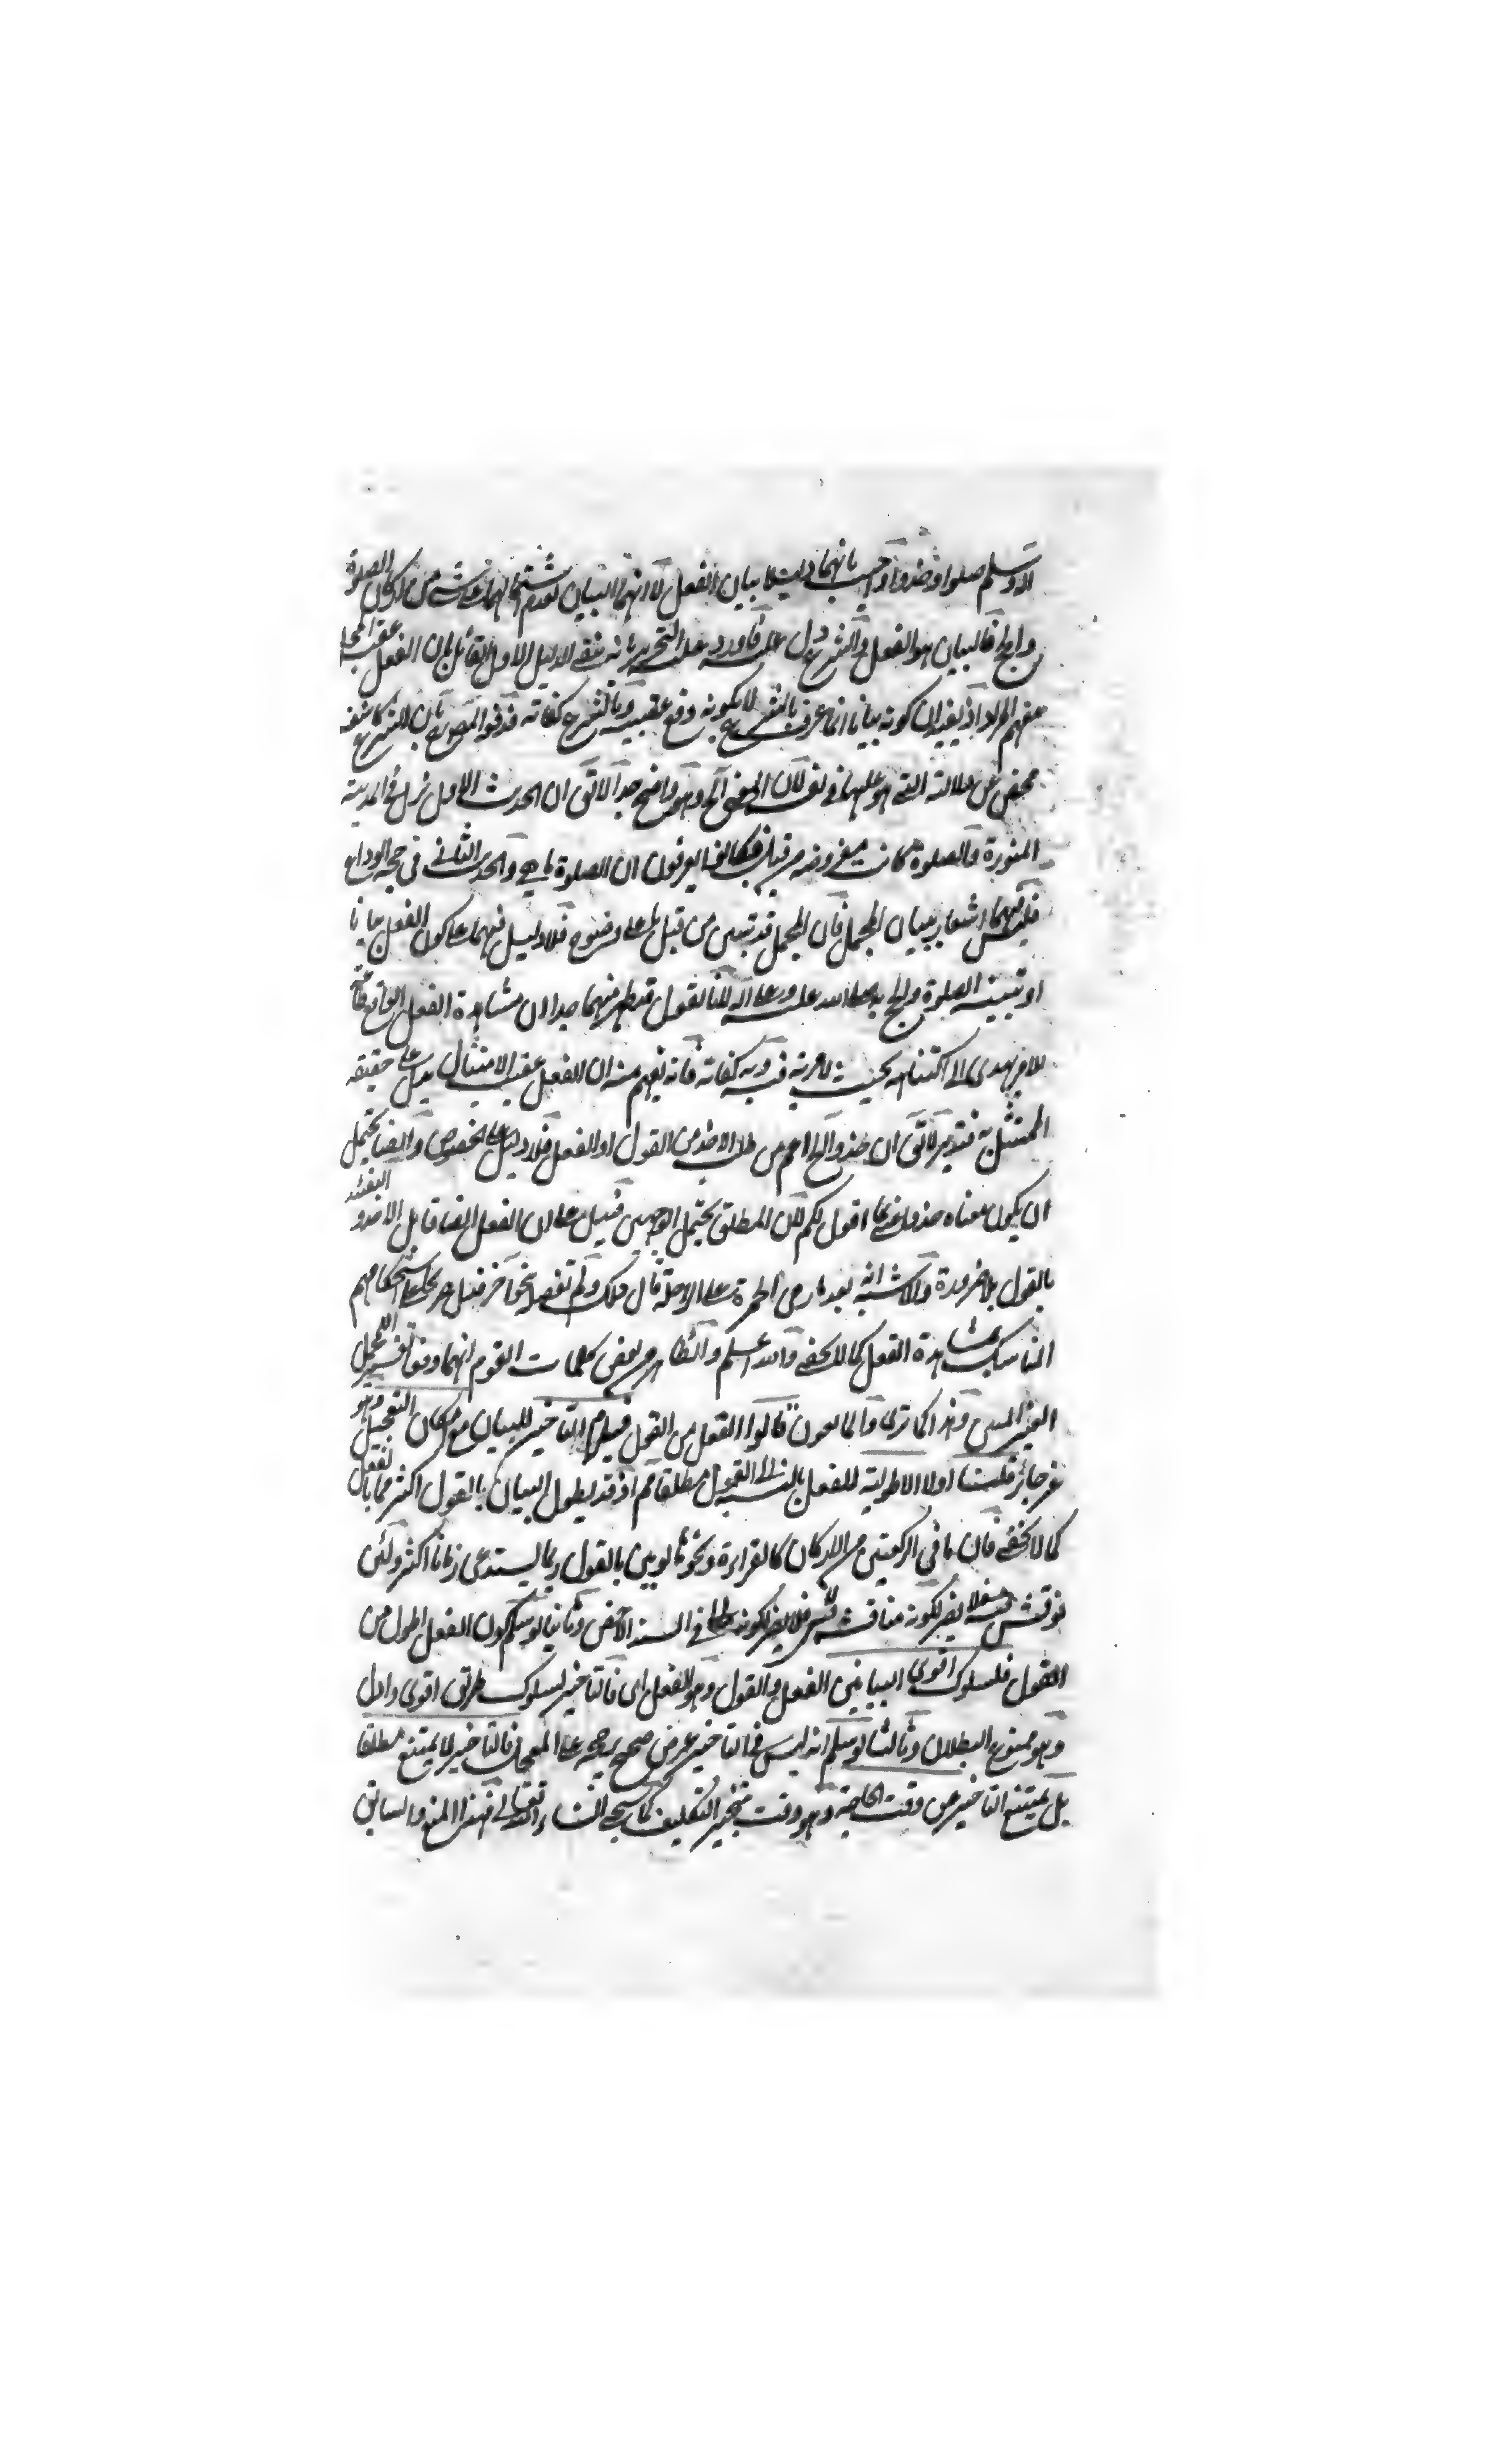 وسلم صلوا وخذوا واجيب بانهما دليلا بيان الفعل لا انهما البيان لعدم اشتمالهما على شئ من اركان الصلوة
والحج فالبيان هو الفعل والشرع دل عليه فاورد عليه التحرير بانه ينفي الدليل الاول القائل بان الفعل عقيب المجمل
مفهم المراد اذ يفيد ان كونه بيانا انما عرف بالشرع لا بكونه وقع عقيبه وبالشرع كفاية
عن دلالته التي هو عليها في وهو واضح جدا لا يقال ان الحديث الاول نزل في المدينة
المنورة والصلوة كانت مفروضة من قبل فكانوا يعرفون ان الصلوة ما هي والحديث الثاني في حجة الوداع
فليس فيهما اشعار ببيان المجمل فان المجمل قد تبين من قبل على وضوح فلا دليل فيهما على كون الفعل بيانا
او تبيينه الصلوة والحج به صلى الله عليه وعلى اله لانا نقول قد ظهر منهما جدا ان مشاهدة الفعل الواقع
للامر يهدي الى اكتناهه بحيث لا مرية فيه وبه كفاية فانه يفهم منه ان الفعل عقيب الامتثال يدل على حقيقة
الممتثل به فتدبر لا يقال ان خذوا اعم من طلب الاخذ من القول او الفعل فلا دليل على الخصوص وايضا يحتمل
ان يكون معناه خذوا اقول لكم لان المطلق يحتمل الوجهين فيدل على ان الفعل ايضا قابل الاخذ والتقييد
بالقول بلا ضرورة والاشبه انه بعد ما رمى الجمرة على الراحلة قال ذلك ولم يفصل بنحو اخر فدل صريحا على استحكامهم
المناسك بمشاهدة الفعل كما لا يخفى والله اعلم والظاهر من بعض كلمات القوم انهما وقعا تفسير المجمل
الغير المبين وهذا كما ترى والمانعون قالوا الفعل اطول من القول فيلزم التاخير للبيان مع امكان التعجيل وهو
غير جائز قلنا اولا الاطولية للفعل بالنسبة الى القول مطلقا مم اذ قد يطول البيان بالقول اكثر مما بالفعل
كما لا يخفى فان ما في الركعتين من الاركان كالقراءة ونحوها لو بين بالقول ربما يستدعي زمانا اكثر ولئن
نوقش فيه فلا يضر لكونه مناقشة في السند الاخص وثانيا لو سلم كون الفعل اطول من
القول فلسلوك اقوى البيانين الفعل والقول وهو الفعل اى فالتاخير لسلوك طريق اقوى وادل
وهو ممنوع البطلان وثالثا لو سلم انه ليس في التاخير غرض صحيح يرجحه على التعجيل فالتاخير لا يمتنع مطلقا
بل يمتنع التاخير عن وقت الحاجة وهو وقت تنجيز التكليف كما سيجئ انشاء الله تعالى فهذا المنع والسابق